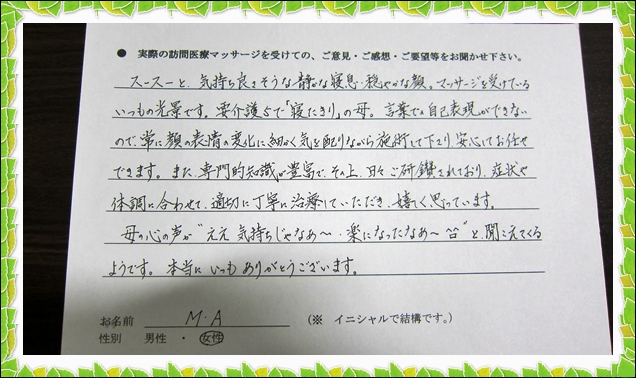 ● 実際の訪問医療マッサージを受けての、ご意見・ご感想・ご要望等をお聞かせ下さい。
スースーと、気持ち良さそうな静かな寝息・穏やかな顔。マッサージを受けている
いつもの光景です。要介護5で「寝たきり」の母。言葉で自己表現ができない
ので、常に顔の表情の変化に細かく気を配りながら施術して下さり安心してお任せ
できます。また、専門的知識が豊富で、その上、日々ご研鑽されており、症状や
体調に合わせて、適切に丁寧に治療していただき、嬉しく思っています。
母の心の声が"ええ気持ちじゃなあ〜・楽になったなあ〜"と、聞こえてくる
ようです。本当にいつもありがとうございます。
お名前 M.A (※ イニシャルで結構です。)
性別 男性 ・ 女性